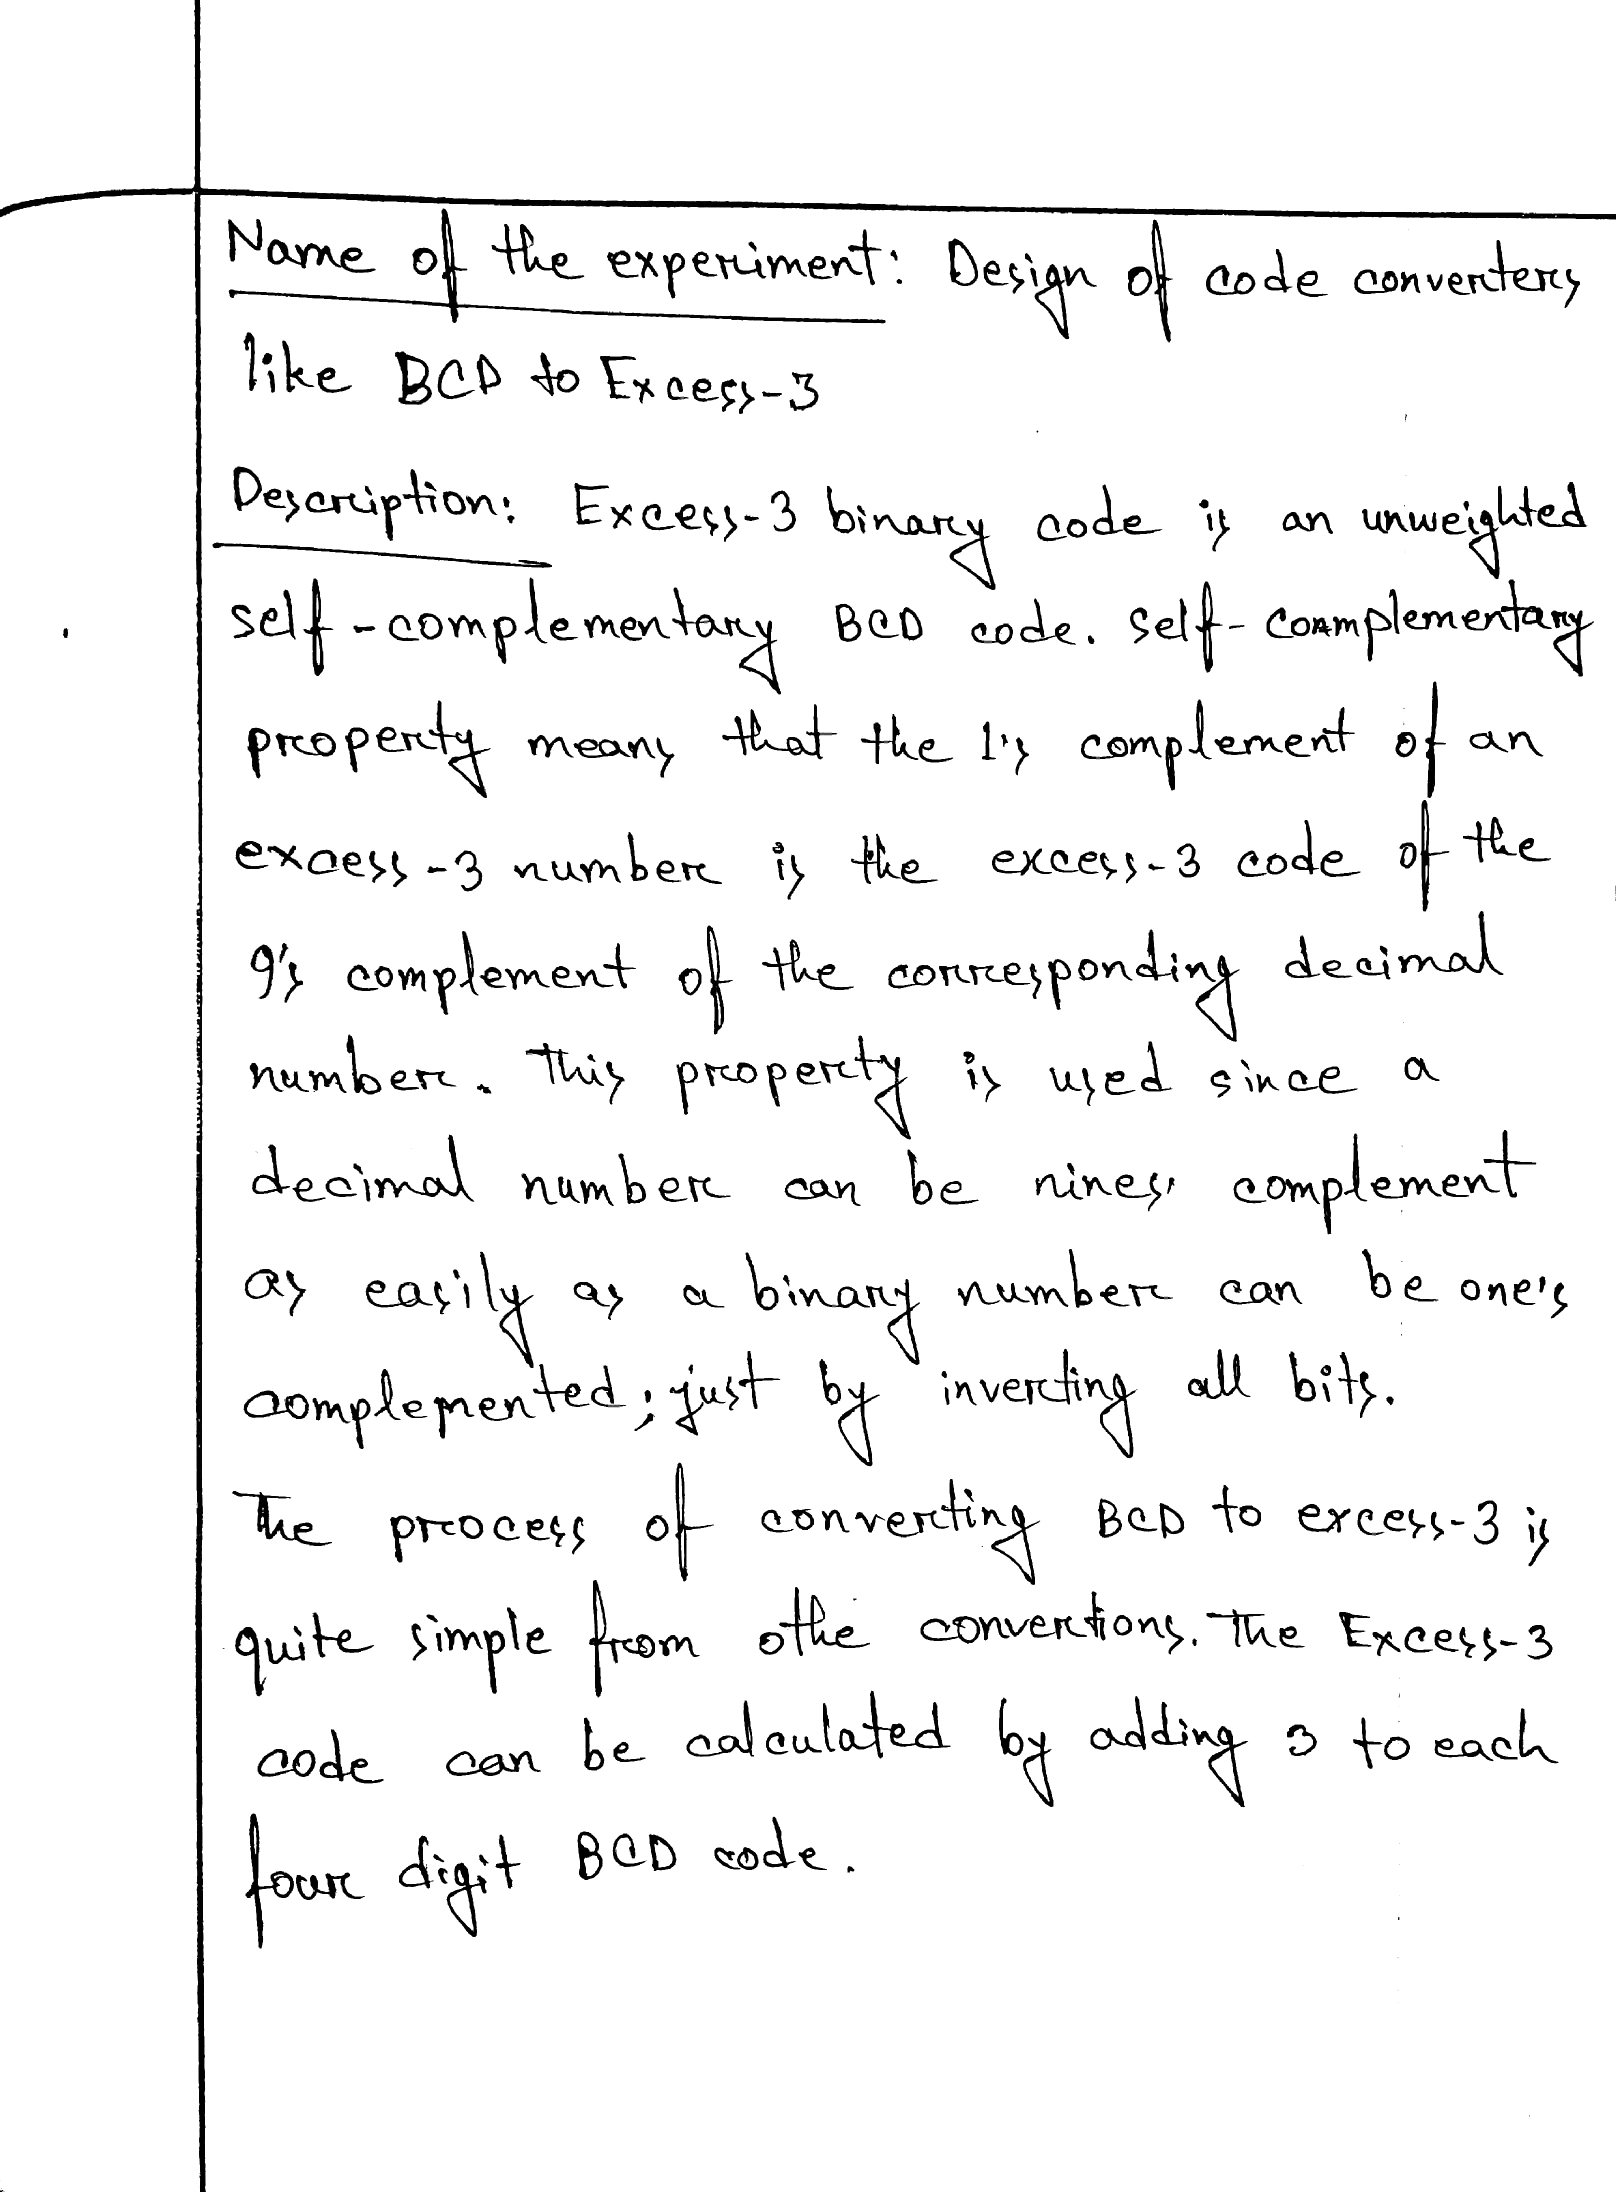 Name of the experiment: Design of code converters
like BCD to Excess-3
Description: Excess-3 binary code is an unweighted
self-complementary BCD code. self-complementary
property means that the 1's complement of an
excess-3 number is the excess-3 code of the
9's complement of the corresponding decimal
number. This property is used since a
decimal number can be nines' complement
as easily as a binary number can be one's
complemented; just by inverting all bits.
The process of converting BCD to excess-3 is
quite simple from othe convertions. The Excess-3
code can be calculated by adding 3 to each
four digit BCD code.